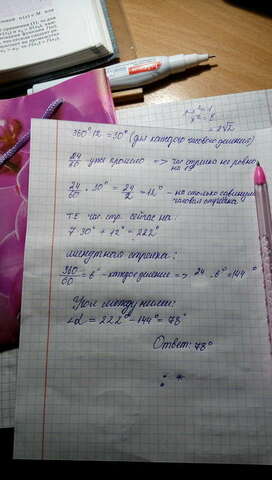 360° 12 = 30° (для каждого часового деления)
24/60 уже прошло => час стрелка не ровно на
24/60 · 30° = 24/2 = 12° - на столько сдвинулась
часовая стрелка
Т.Е час. стр. сейчас на
7 30° + 12° = 222°
минутная стрелка:
360/60 = 6° - каждое деление => 24 · 6° = 144°
Угол между ними:
∠α = 222° - 144° = 78°
Ответ: 78°
= 2√2